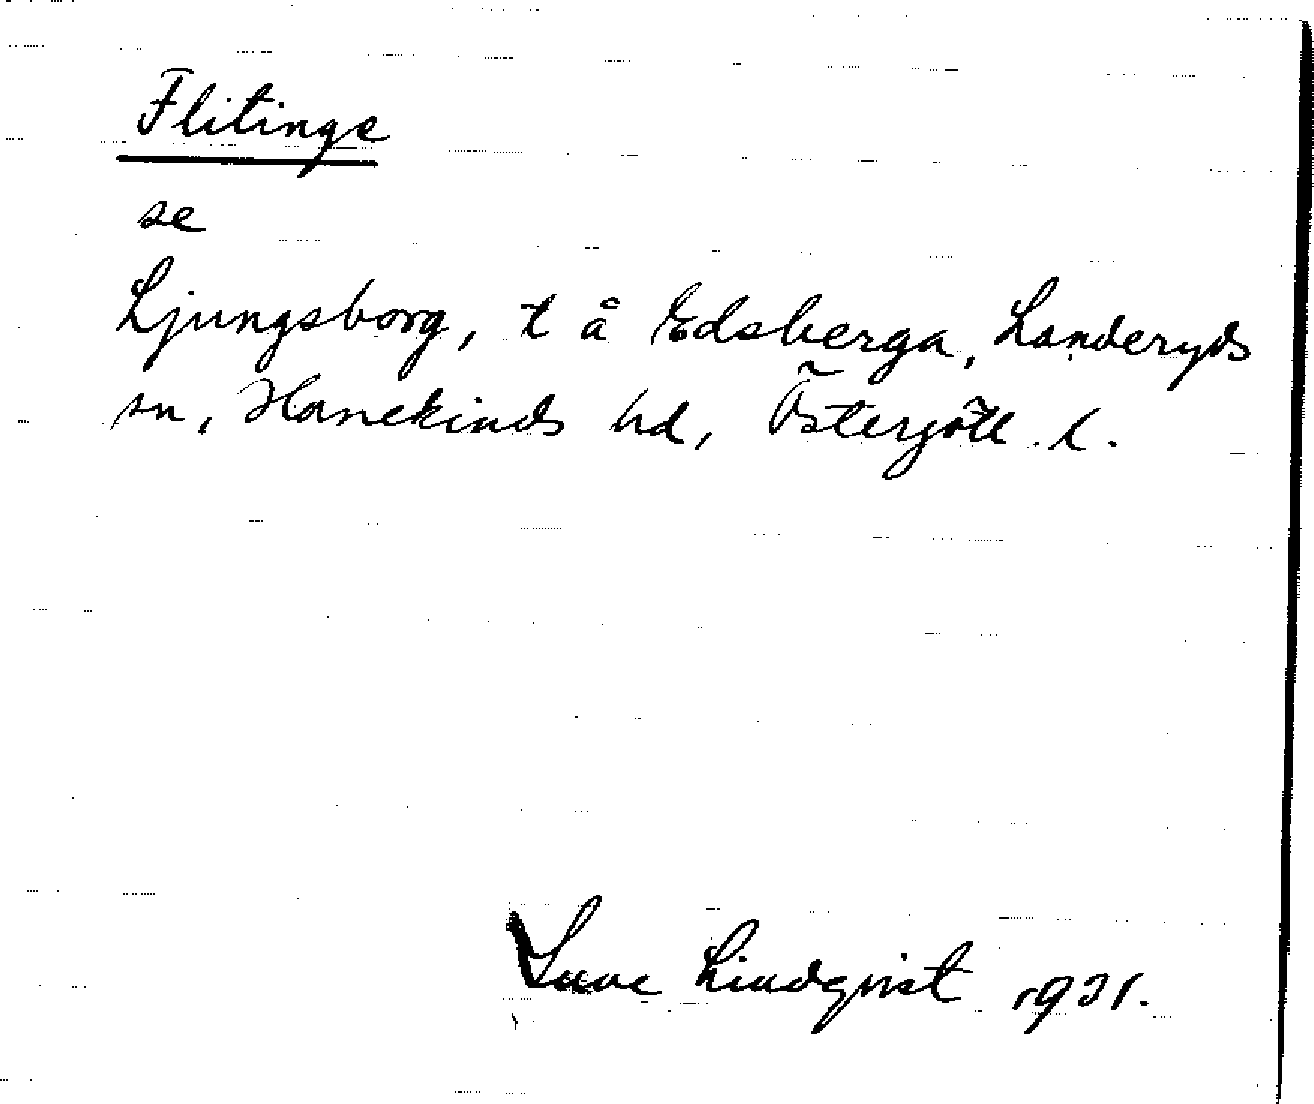 Flitinge
se
Ljungsborg, t å Edsberga, Landeryds
sn, Hanekinds hd, Östergötl. l.
Sune Lindqvist 1921.